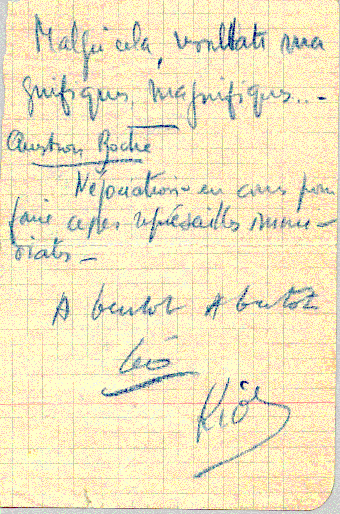 Malgré cela, résultats ma
gnifiques, magnifiques...
Question Roche
Négociations en cours pour
faire cesser représailles immé-
diates -
A bientot A bientot
Léo